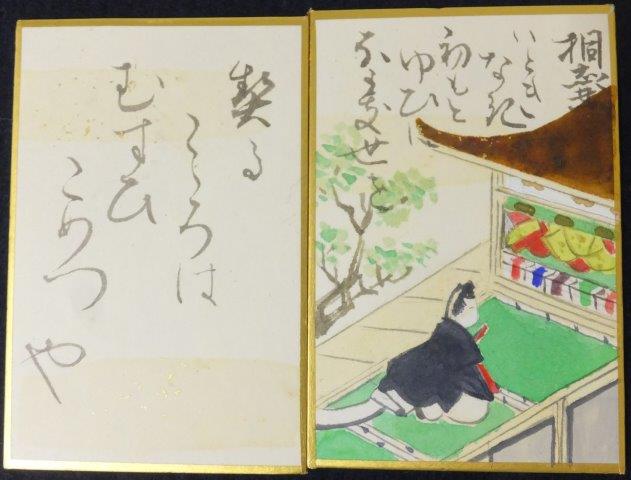 桐壺
いとき
なき
初もと
ゆひに
なかき世を
契る
こゝろは
むすひ
こめつ
や